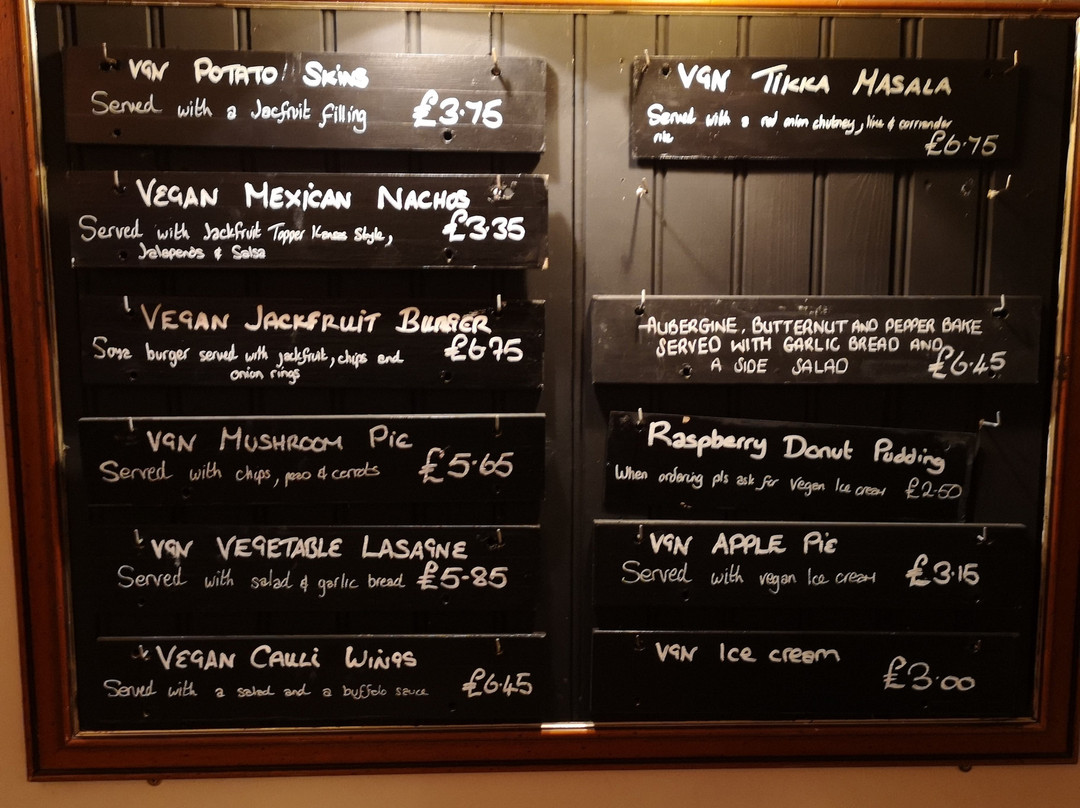 VGN POTATO SKINS
Served with a Jacfruit filling £3.75
VEGAN MEXICAN NACHOS
£3.35
Served with Jackfruit Topper Kansas Style,
Jalapenos & Salsa
VEGAN JACKFRUIT BURGER
£6.75
Soya burger served with jackfruit, chips and
onion rings
VGN MUSHROOM PIE
Served with chips, peas & carrots £5.65
VGN VEGETABLE LASAGNE
Served with salad & garlic bread £5.85
VEGAN CAULI WINGS
Served with a salad and a buffolo sauce £6.45
VGN TIKKA MASALA
Served with a red onion chutney, lime & corriander
rice £6.75
AUBERGINE, BUTTERNUT AND PEPPER BAKE
SERVED WITH GARLIC BREAD AND
A SIDE SALAD £6.45
Raspberry Donut Pudding
When ordering pls ask for Vegan Ice cream £2.50
VGN APPLE PIE
Served with vegan Ice cream £3.15
VGN Ice cream
£3.00